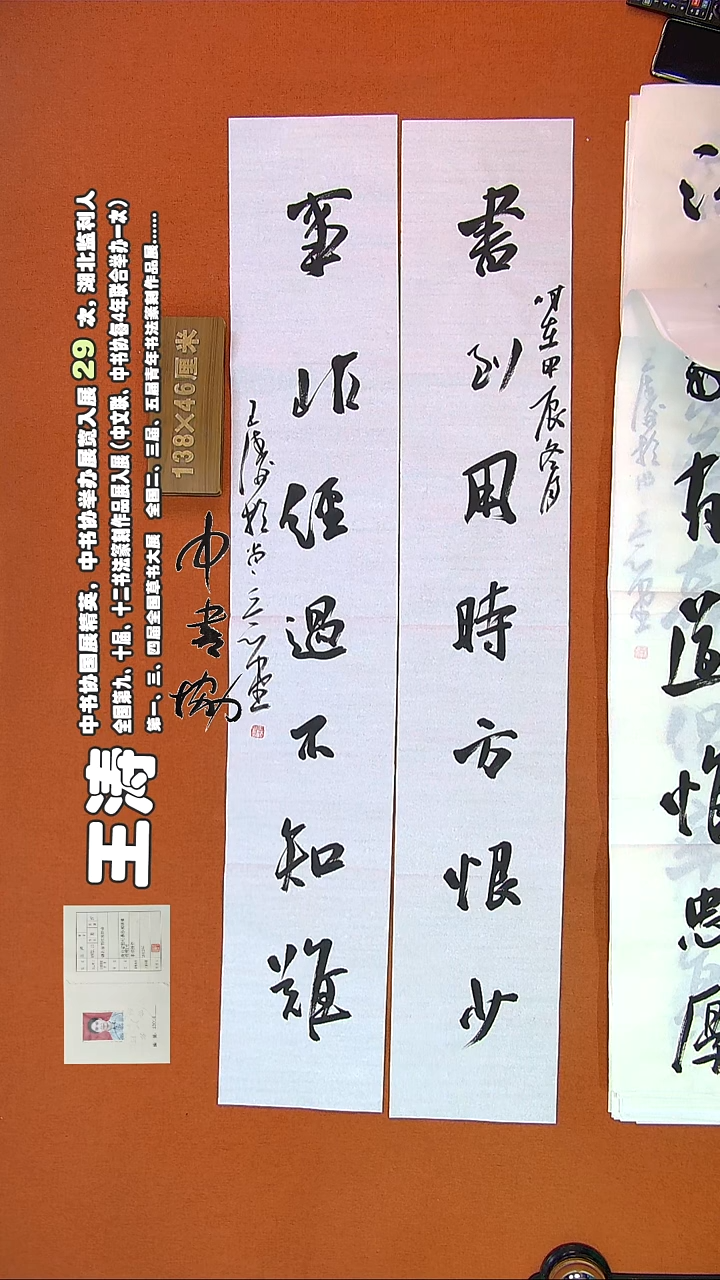 書到用時方恨少
時在甲辰冬月
事非經過不知難
王濤於
中书协国展精英，中书协举办展赛入展 29 次，湖北监利人
全国第九、十届、十二书法篆刻作品展入展（中文联、中书协每4年联合举办一次）
第一、三、四届全国草书大展 全国二、三届、五届青年书法篆刻作品展……
王涛
中書協
138×46厘米
有
道
恨